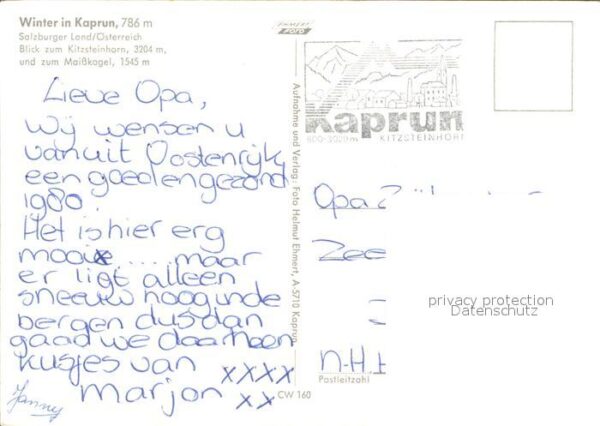 Winter in Kaprun, 786 m
Salzburger Land/Österreich
Blick zum Kitzsteinhorn, 3204 m,
und zum Maißkogel, 1545 m
Lieve Opa,
Wij wensen u
vanuit Oostenrijk
een goed en gezond
1980.
Het is hier erg
mooi .... maar
er ligt alleen
sneeuw hoog in de
bergen dus dan
gaad we daar heen
kusjes van xxxx
marjon xx
Janny
EHMERT FOTO
Aufnahme und Verlag: Foto Helmut Ehmert, A-5710 Kaprun
CW 160
Kaprun
800-3029 m KITZSTEINHORN
Opa
Zee
privacy protection
Datenschutz
N-H
Postleitzahl